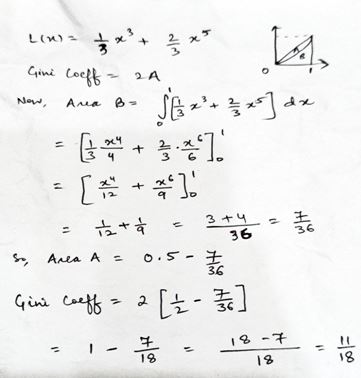 L(x) = 1/3 x³ + 2/3 x⁵
A
B
0 1
Gini Coeff = 2A
Now, Area B = ∫₀¹ [1/3 x³ + 2/3 x⁵] dx
= [1/3 x⁴/4 + 2/3 · x⁶/6]₀¹
= [x⁴/12 + x⁶/9]₀¹
= 1/12 + 1/9 = (3 + 4)/36 = 7/36
So, Area A = 0.5 - 7/36
Gini Coeff = 2 [1/2 - 7/36]
= 1 - 7/18 = (18 - 7)/18 = 11/18